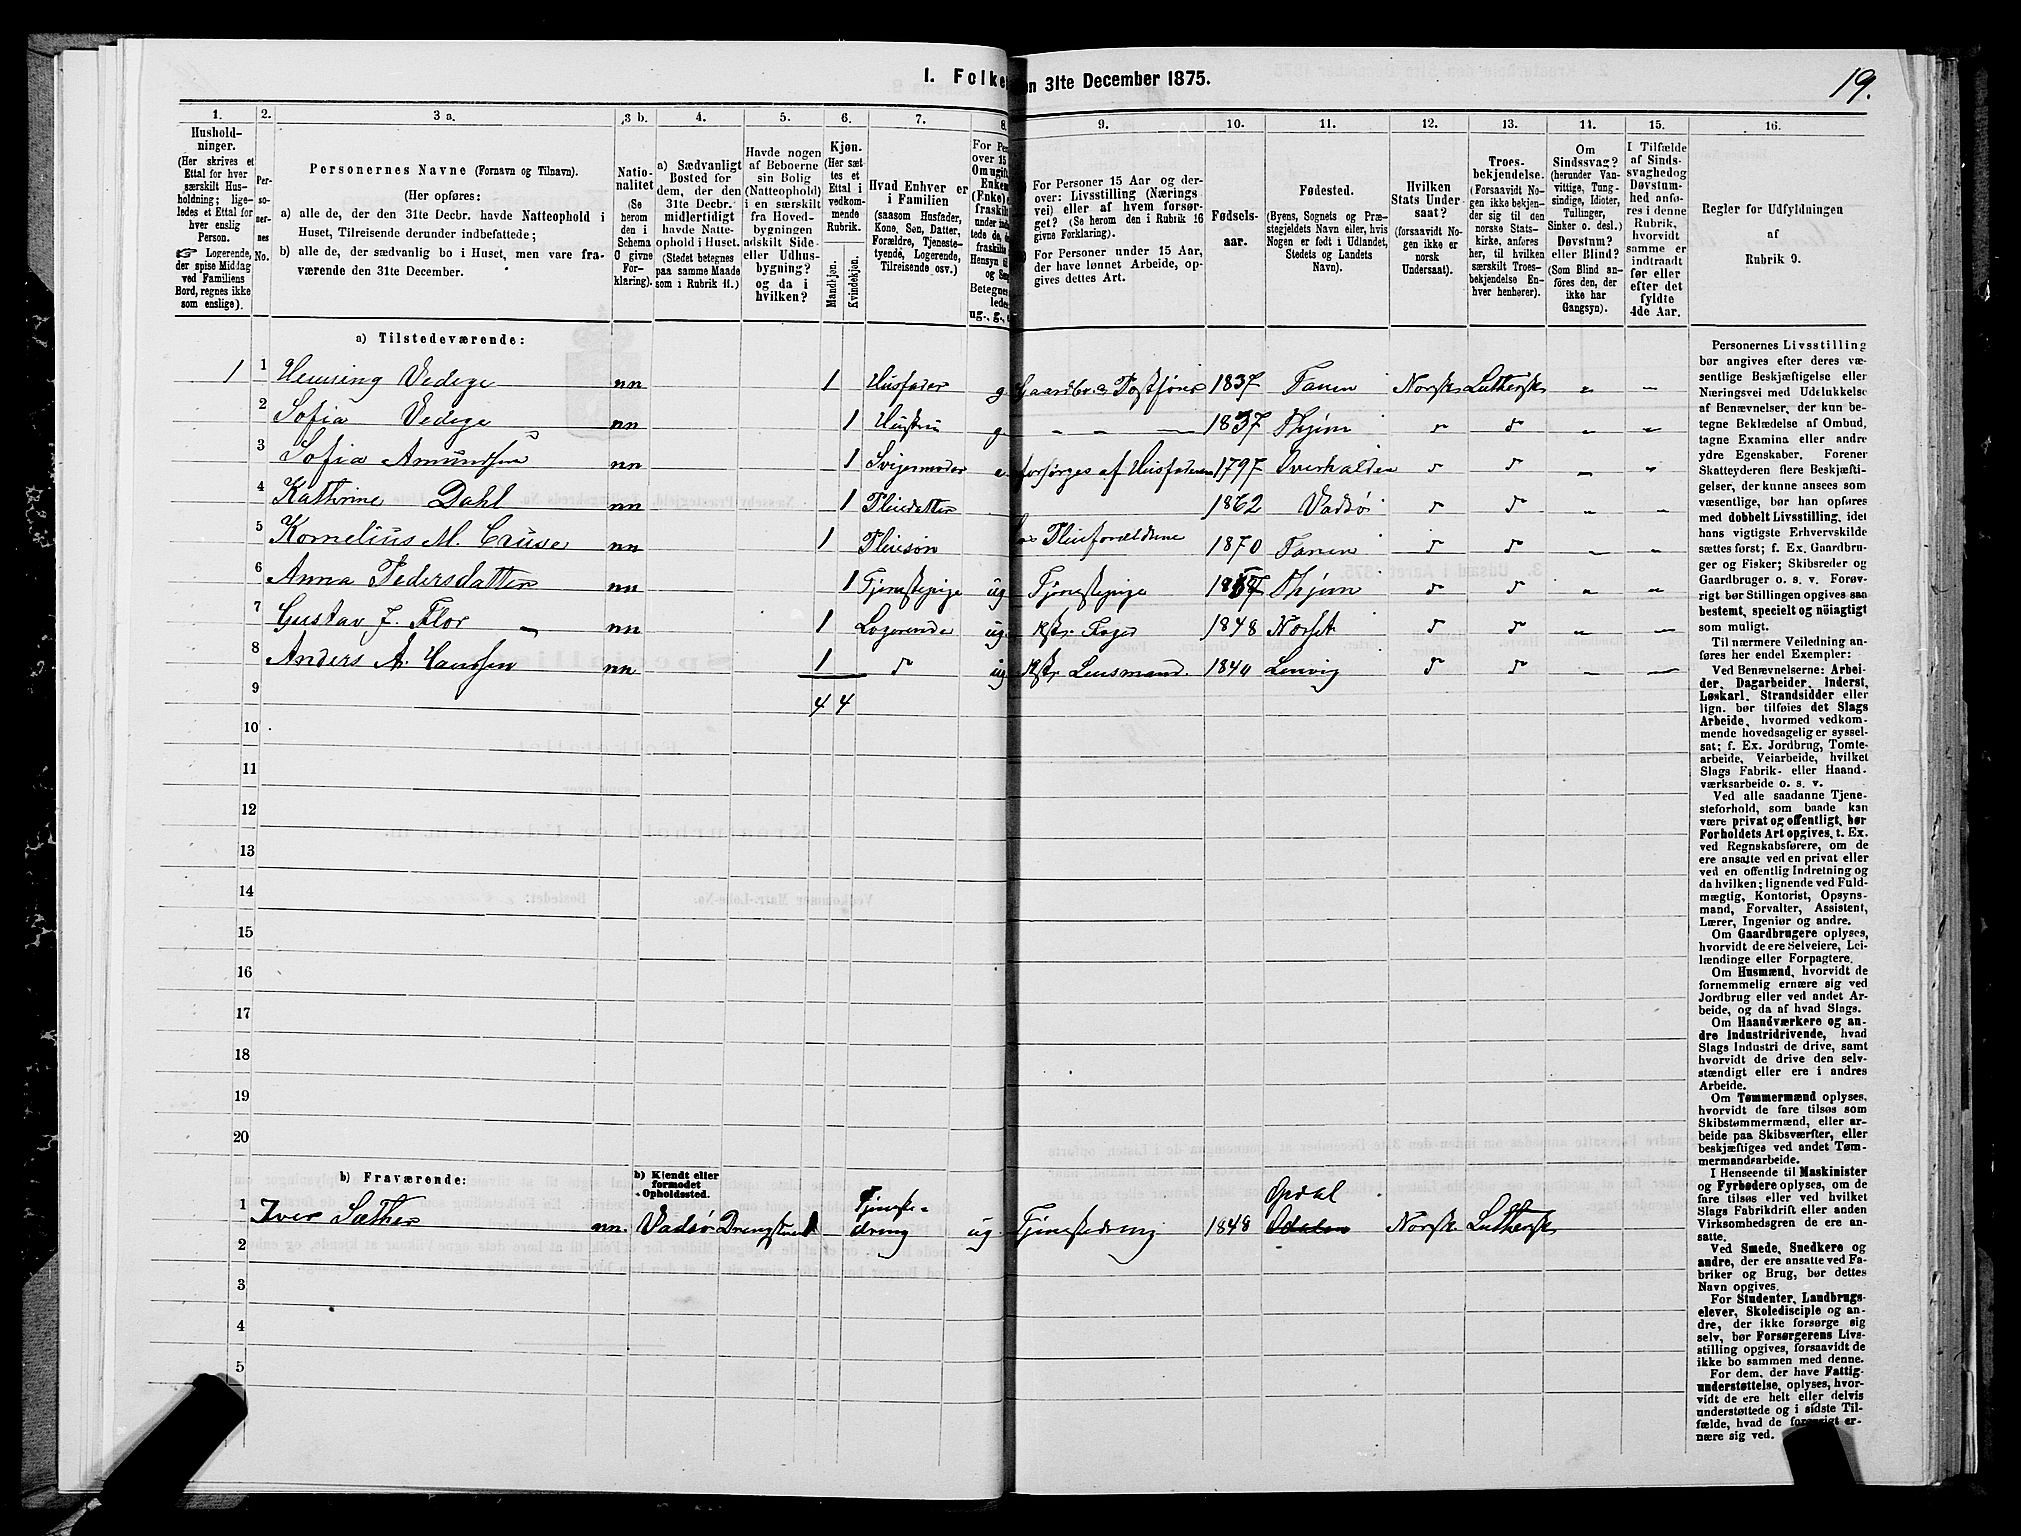 I. Folke
en 31te December 1875.
19.
1.
Hushold-
ninger.
(Her skrives et
Ettal for hver
særskilt Hus-
holdning; lige-
ledes et Ettal for
hver enslig
Person.
☞ Logerende,
der spise Middag
ved Familiens
Bord, regnes ikke
som enslige).
2.
Per-
so-
ner-
nes
No.
3 a.
Personernes Navne (Fornavn og Tilnavn).
(Her opføres:
a) alle de, der den 31te Decbr. havde Natteophold i
Huset, Tilreisende derunder indbefattede;
b) alle de, der sædvanlig bo i Huset, men vare fra-
værende den 31te December.
3 b.
Natio-
nalitet
(Se
herom
den i
Schema
O givne
For-
klaring).
4.
a) Sædvanligt
Bosted for
dem, der den
31te Decbr.
midlertidigt
havde Natte-
ophold i Huset.
(Stedet betegnes
paa samme Maade
som i Rubrik 11.)
5.
Havde nogen
af Beboerne
sin Bolig
(Natteophold)
i en særskilt
fra Hoved-
bygningen
adskilt Side-
eller Udhus-
bygning?
og da i
hvilken?
6.
Kjøn.
(Her sæt-
tes et
Ettal i
vedkom-
mende
Rubrik.
Mandkjøn.
Kvindekjøn.
7.
Hvad Enhver er
i Familien
(saasom Husfader,
Kone, Søn, Datter,
Forældre, Tjeneste-
tyende, Logerende,
Tilreisende osv.)
8.
For Pe
over 15
Om ugift
Enkem
(Enke) e
fraskilt
under ind
tede de,
fraskilte
Hensyn til
og Sen
Betegnes
lede
ug., g.,
9.
For Personer 15 Aar og der-
over: Livsstilling (Nærings-
vei) eller af hvem forsør-
get? (Se herom den i Rubrik 16
givne Forklaring).
For Personer under 15 Aar,
der have lønnet Arbeide, op-
gives dettes Art.
10.
Fødsels-
aar.
11.
Fødested.
(Byens, Sognets og Præ-
stegjeldets Navn eller, hvis
Nogen er født i Udlandet,
Stedets og Landets
Navn).
12.
Hvilken
Stats Under-
saat?
(forsaavidt No-
gen ikke er
norsk
Undersaat).
13.
Troes-
bekjendelse.
(Forsaavidt No-
gen ikke bekjen-
der sig til den
norske Stats-
kirke, anføres
her, til hvilken
særskilt Troes-
bekjendelse En-
hver henhører).
14.
Om
Sindssvag?
(herunder Van-
vittige, Tung-
sindige, Idioter,
Tullinger,
Sinker o. desl.)
Døvstum?
eller Blind?
(Som Blind an-
føres den, der
ikke har
Gangsyn).
15.
I Tilfælde
af Sinds-
svaghed og
Døvstum-
hed anfø-
res i denne
Rubrik,
hvorvidt
samme er
indtraadt
før eller
efter det
fyldte
4de Aar.
16.
Regler for Udfyldningen
af
Rubrik 9.
a) Tilstedeværende:
1 1 Henning Vedege nn 1 Husfader g Gaardbr. & Postfører 1837 Tanen Norsk Luthersk " –
2 Sofia Vedege nn 1 Hustru g – – – 1837 Thjøm
3 Sofia Amundsen nn 1 Svigermoder e forsørges af Husfaderen 1797 Overhalden
4 Kathrine Dahl nn 1 Pleiedatter 1862 Vadsø
5 Kornelius M. Cruse nn 1 Pleiesøn Pleieforældrene 1870 Tanen
6 Anna Pedersdatter nn 1 Tjenestepige ug Tjenestepige Thjøm
7 Gustav J. Flor nn 1 Logerende ug Kst. Foged 1848 Norset
8 Anders A. Hanssen nn 1 d° ug Kst. Lensmand. 1840 Lenvig
9
4 4
10
11
12
13
14
15
16
17
18
19
20
b) Fraværende:
b) Kjendt eller
formodet
Opholdssted.
1 Iver Sæther nn. Vadsø 1 Tjeneste-
dreng ug Tjenestedreng 1848 Opdal Norsk Luthersk
2
3
4
5
Personernes Livsstilling
bør angives efter deres væ-
sentlige Beskjæftigelse eller
Næringsvei med Udelukkelse
af Benævnelser, der kun be-
tegne Beklædelse af Ombud,
tagne Examina eller andre
ydre Egenskaber. Forener
Skatteyderen flere Beskjæfti-
gelser, der kunne ansees som
væsentlige, bør han opføres
med dobbelt Livsstilling, idet
hans vigtigste Erhvervskilde
sættes først; f. Ex. Gaardbru-
ger og Fisker; Skibsreder og
Gaardbruger o. s. v. Forøv-
rigt bør Stillingen opgives saa
bestemt, specielt og nöiagtigt
som muligt.
Til nærmere Veiledning an-
føres her endel Exempler:
Ved Benævnelserne: Arbei-
der, Dagarbeider, Inderst,
Løskarl, Strandsidder eller
lign. bør tilføies det Slags
Arbeide, hvormed vedkom-
mende hovedsagelig er syssel-
sat; f. Ex. Jordbrug, Tomte-
arbeide, Veiarbeide, hvilket
Slags Fabrik- eller Haand-
værksarbeide o. s. v.
Ved alle saadanne Tjene-
steforhold, som baade kan
være privat og offentligt, bør
Forholdets Art opgives, t. Ex.
ved Regnskabsførere, om de
ere ansatte ved en privat eller
ved en offentlig Indretning og
da hvilken; lignende ved Fuld-
mægtig, Kontorist, Opsyns-
mand, Forvalter, Assistent,
Lærer, Ingeniør og andre.
Om Gaardbrugere oplyses,
hvorvidt de ere Selveiere, Lei-
lændinge eller Forpagtere.
Om Husmænd, hvorvidt de
fornemmelig ernære sig ved
Jordbrug eller ved andet Ar-
beide, og da af hvad Slags.
Om Haandværkere og an-
dre Industridrivende, hvad
Slags Industri de drive, samt
hvorvidt de drive den selv-
stændigt eller ere i andres
Arbeide.
Om Tømmermænd oplyses,
hvorvidt de fare tilsøs som
Skibstømmermænd, eller ar-
beide paa Skibsværfter, eller
beskjæftiges ved andet Tøm-
mermandsarbeide.
I Henseende til Maskinister
og Fyrbødere oplyses, om de
fare tilsøs eller ved hvilket
Slags Fabrikdrift eller anden
Virksomhedsgren de ere an-
satte.
Ved Smede, Snedkere og
andre, der ere ansatte ved Fa-
briker og Brug, bør dettes
Navn opgives.
For Studenter, Landbrugs-
elever, Skoledisciple og an-
dre, der ikke forsørge sig
selv, bør Forsørgerens Livs-
stilling opgives, forsaavidt de
ikke bo sammen med denne.
For dem, der have Fattig-
understøttelse, oplyses, hvor-
vidt de ere helt eller delvis
understøttede og i sidste Til-
fælde, hvad de forøvrigt er-
nære sig ved.